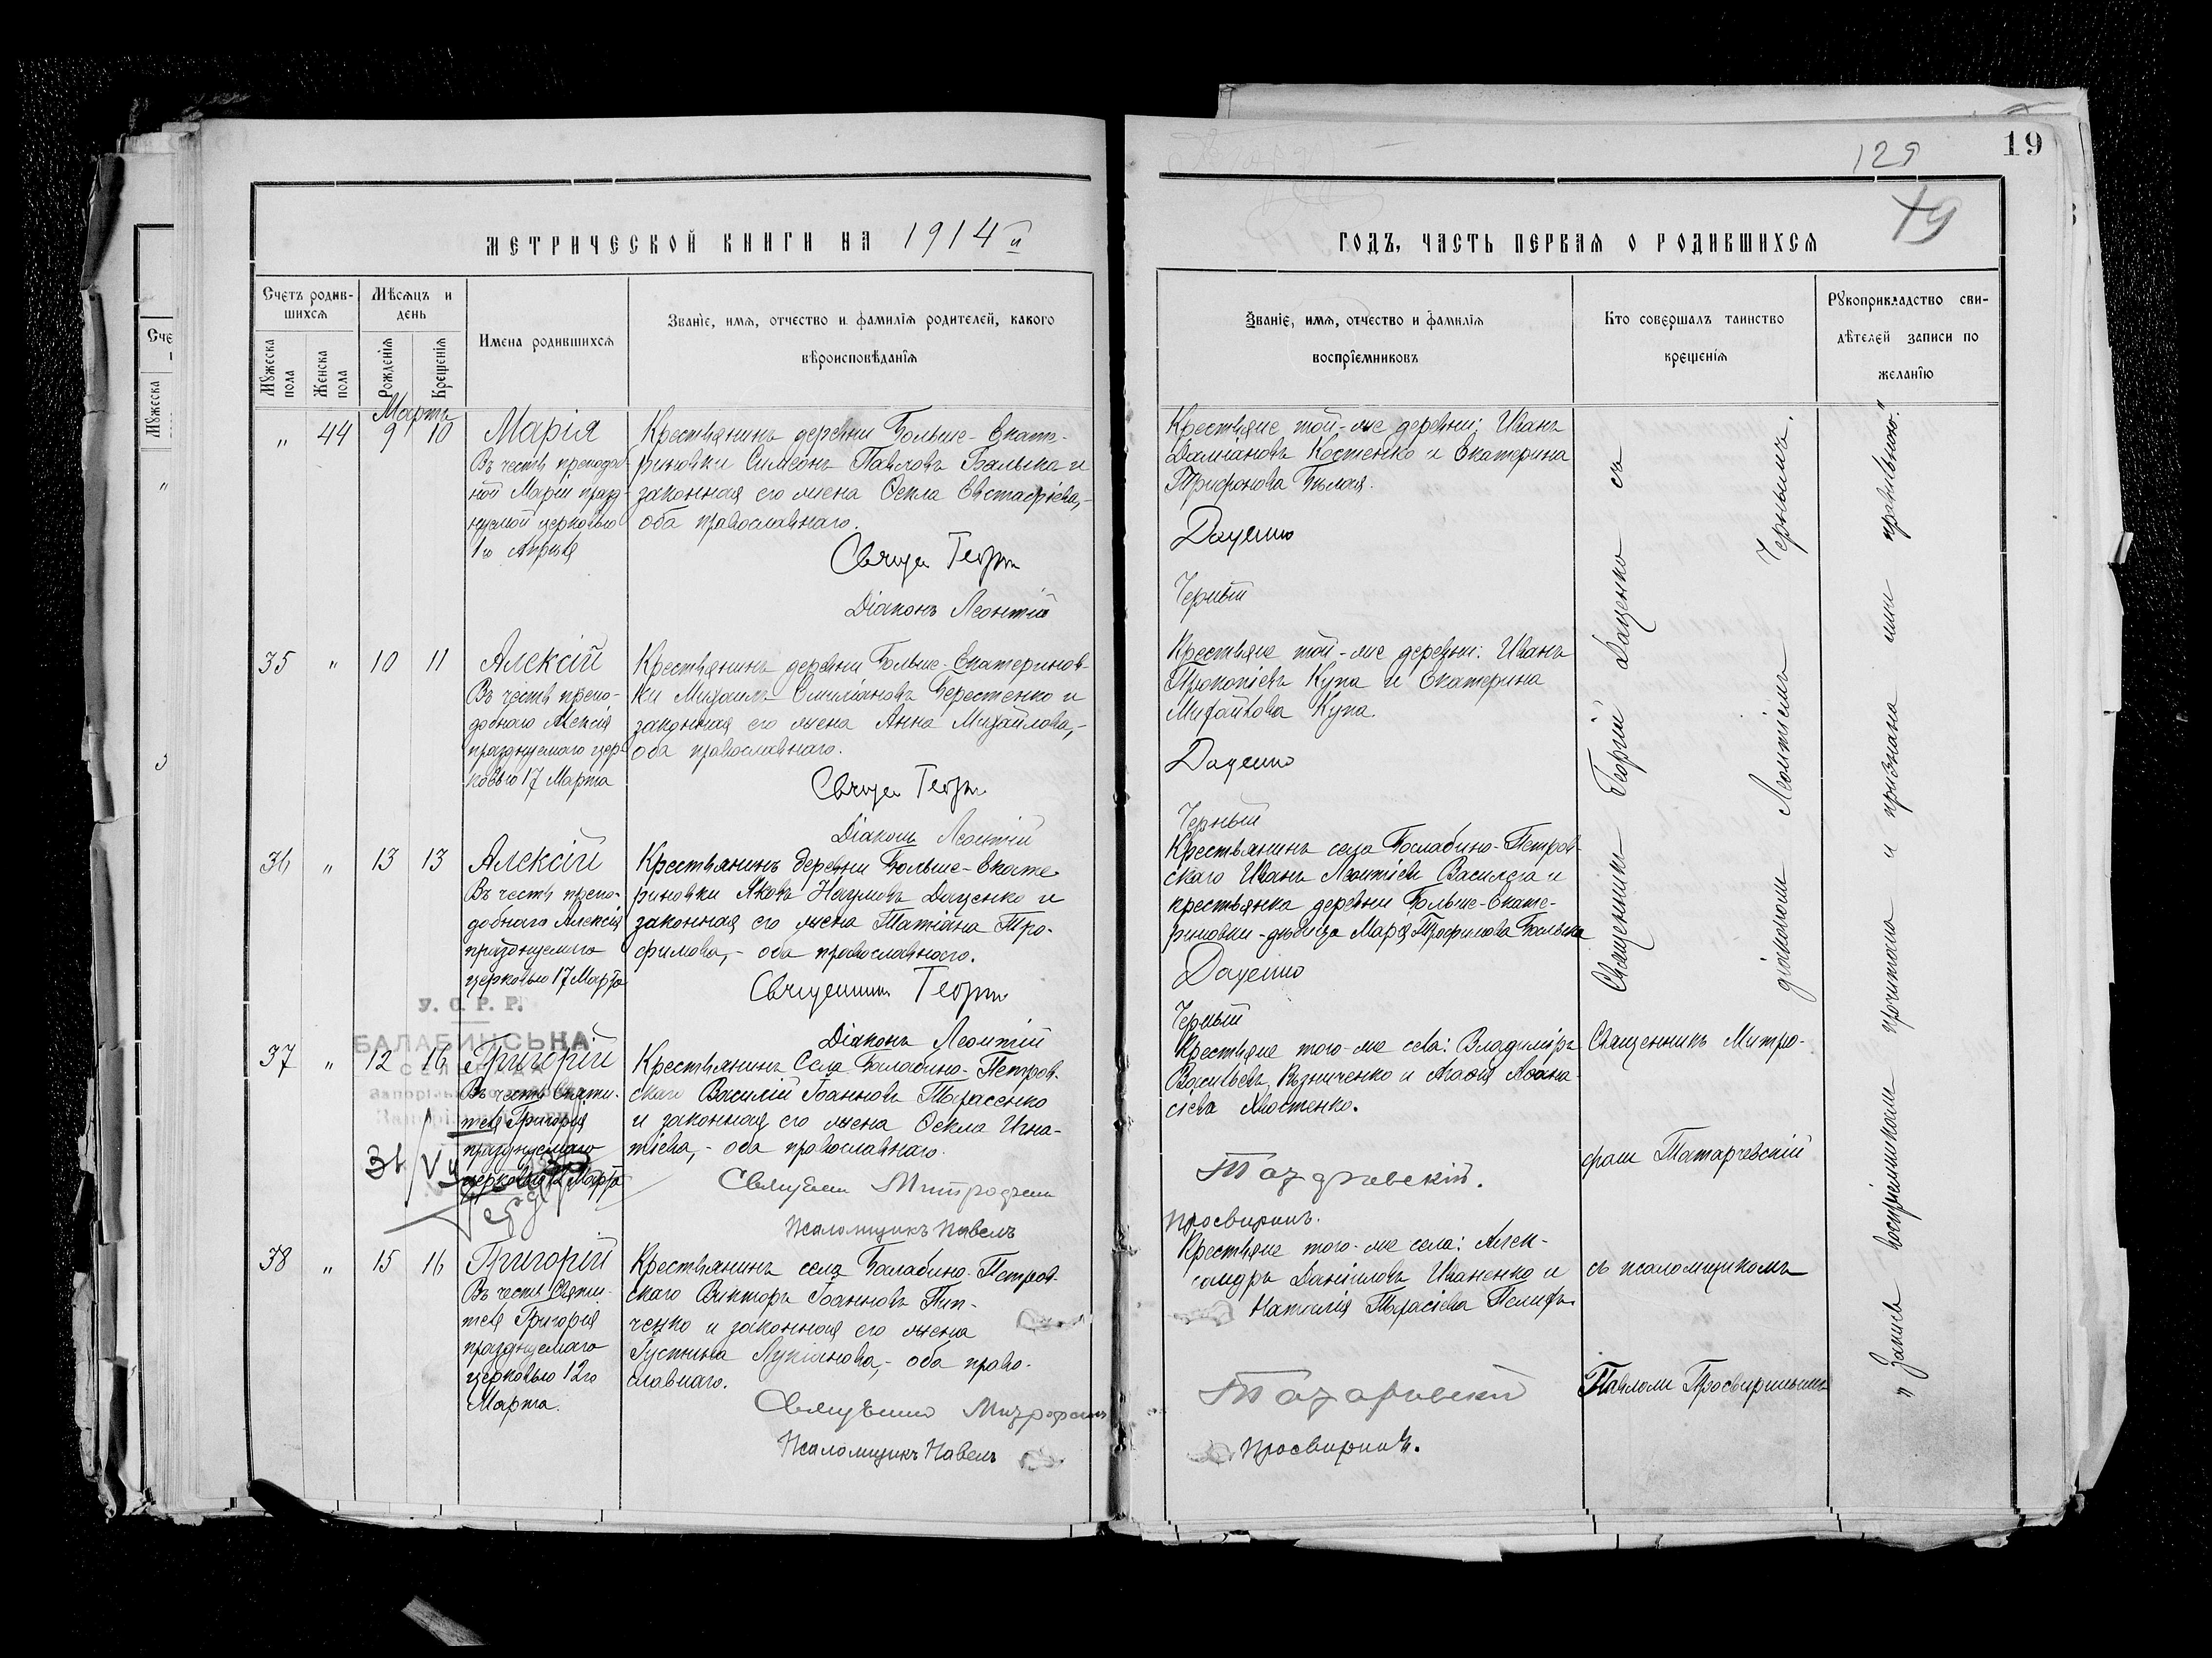 19
129
19
МЕТРИЧЕСКОЙ КНИГИ НА 1914й
ГОДЪ, ЧАСТЬ ПЕРВАЯ О РОДИВШИХСЯ
Счетъ родив-
шихся
Мужеска
пола
Женска
пола
Мѣсяцъ и
день
Рожденія
Крещенія
Имена родившихся
Званіе, имя, отчество и фамилія родителей, какого
вѣроисповѣданія
Званіе, имя, отчество и фамилія
воспріемниковъ
Кто совершалъ таинство
крещенія
Рукоприкладство сви-
дѣтелей записи по
желанію
Мартъ
„ 44 9 10
Марія
Въ честь преподоб-
ной Маріи празд-
нуемой церковью
1го Апрѣля
Крестьянинъ деревни Больше-Екате-
риновки Симеонъ Павловъ Балыка и
законная его жена Ѳекла Евстафіева,-
оба православнаго.
Священ Георгій
Діаконъ Леонтій
Крестьяне той-же деревни: Иванъ
Даміановъ Костенко и Екатерина
Трифонова Бѣлая.
Даценко
Черный
35 „ 10 11
Алексій
Въ честь препо-
добнаго Алексія
празднуемаго цер-
ковью 17 Марта
Крестьянинъ деревни Больше-Екатеринов-
ки Михаилъ Емиліановъ Берестенко и
законная его жена Анна Михайлова,-
оба православнаго.
Священ Георгій
Діаконъ Леонтій
Крестьяне той-же деревни: Иванъ
Прокопіевъ Купа и Екатерина
Михайлова Купа.
Даценко
Черный
36 „ 13 13
Алексій
Въ честь препо-
добнаго Алексія
празднуемаго
церковью 17 Марта
Крестьянинъ деревни Больше-Екате-
риновки Яковъ Наумовъ Даценко и
законная его жена Татіана Тро-
фимова,- оба православнаго.
Священникъ Георгій
Діаконъ Леонтій
Крестьянинъ села Балабино-Петров-
скаго Иванъ Леонтіевъ Василега и
крестьянка деревни Больше-Екате-
риновки-дѣвица Марія Трофимова Балыка
Даценко
Черный
Священникъ Георгій Даценко съ
діакономъ Леонтіемъ Чернымъ.
У. С. Р. Р.
БАЛАБИНСЬКА
37 „ 12 16
Григорій
Въ честь Святи-
теля Григорія
празднуемаго
церковью 12 Марта
Крестьянинъ Села Балабино-Петров-
скаго Василій Іоанновъ Тарасенко
и законная его жена Ѳекла Игна-
тіева,- оба православнаго.
Священ Митрофанъ
Псаломщикъ Павелъ
Крестьяне того-же села: Владиміръ
Васильевъ Рѣзниченко и Агаѳія Аѳана-
сіева Хвостенко.
Татарчевскій.
Просвиринъ.
Священникъ Митро-
фанъ Татарчевскій
съ псаломщикомъ
Павломъ Просвиринымъ
38 „ 15 16
Григорій
Въ честь Святи-
теля Григорія
празднуемаго
церковью 12го
Марта.
Крестьянинъ села Балабино-Петров-
скаго Викторъ Іоанновъ Пип-
ченко и законная его жена
Іустина Лукіанова,- оба право-
славнаго.
Священникъ Митрофанъ
Псаломщикъ Павелъ
Крестьяне того-же села: Алек-
сандръ Даніиловъ Иваненко и
Наталія Тарасіева
Татарчевскій
Просвиринъ.
„Запись воспріемниками прочитана и признана ими правильною."